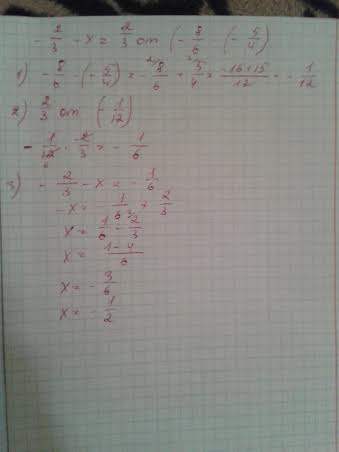 - 2/3 - x = 2/3 от (- 8/6 (- 5/4)
1) - 8/6 - (- 5/4) = - 8/6 + 5/4 = -16+15/12 = - 1/12
2) 2/3 от (- 1/12)
- 1/12 · 2/3 = - 1/6
3) - 2/3 - x = - 1/6
-x = - 1/6 + 2/3
x = 1/6 - 2/3
x = 1-4/6
x = - 3/6
x = - 1/2